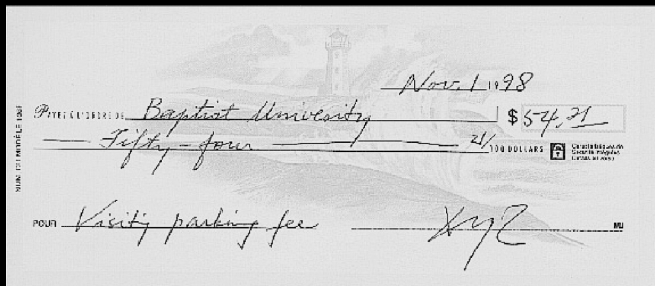 Nov. 1 1998
PAYEZ À L'ORDRE DE Baptist University $ 54.21
Fifty-four 21/100 DOLLARS
POUR Visiti parking fee XYZ MP